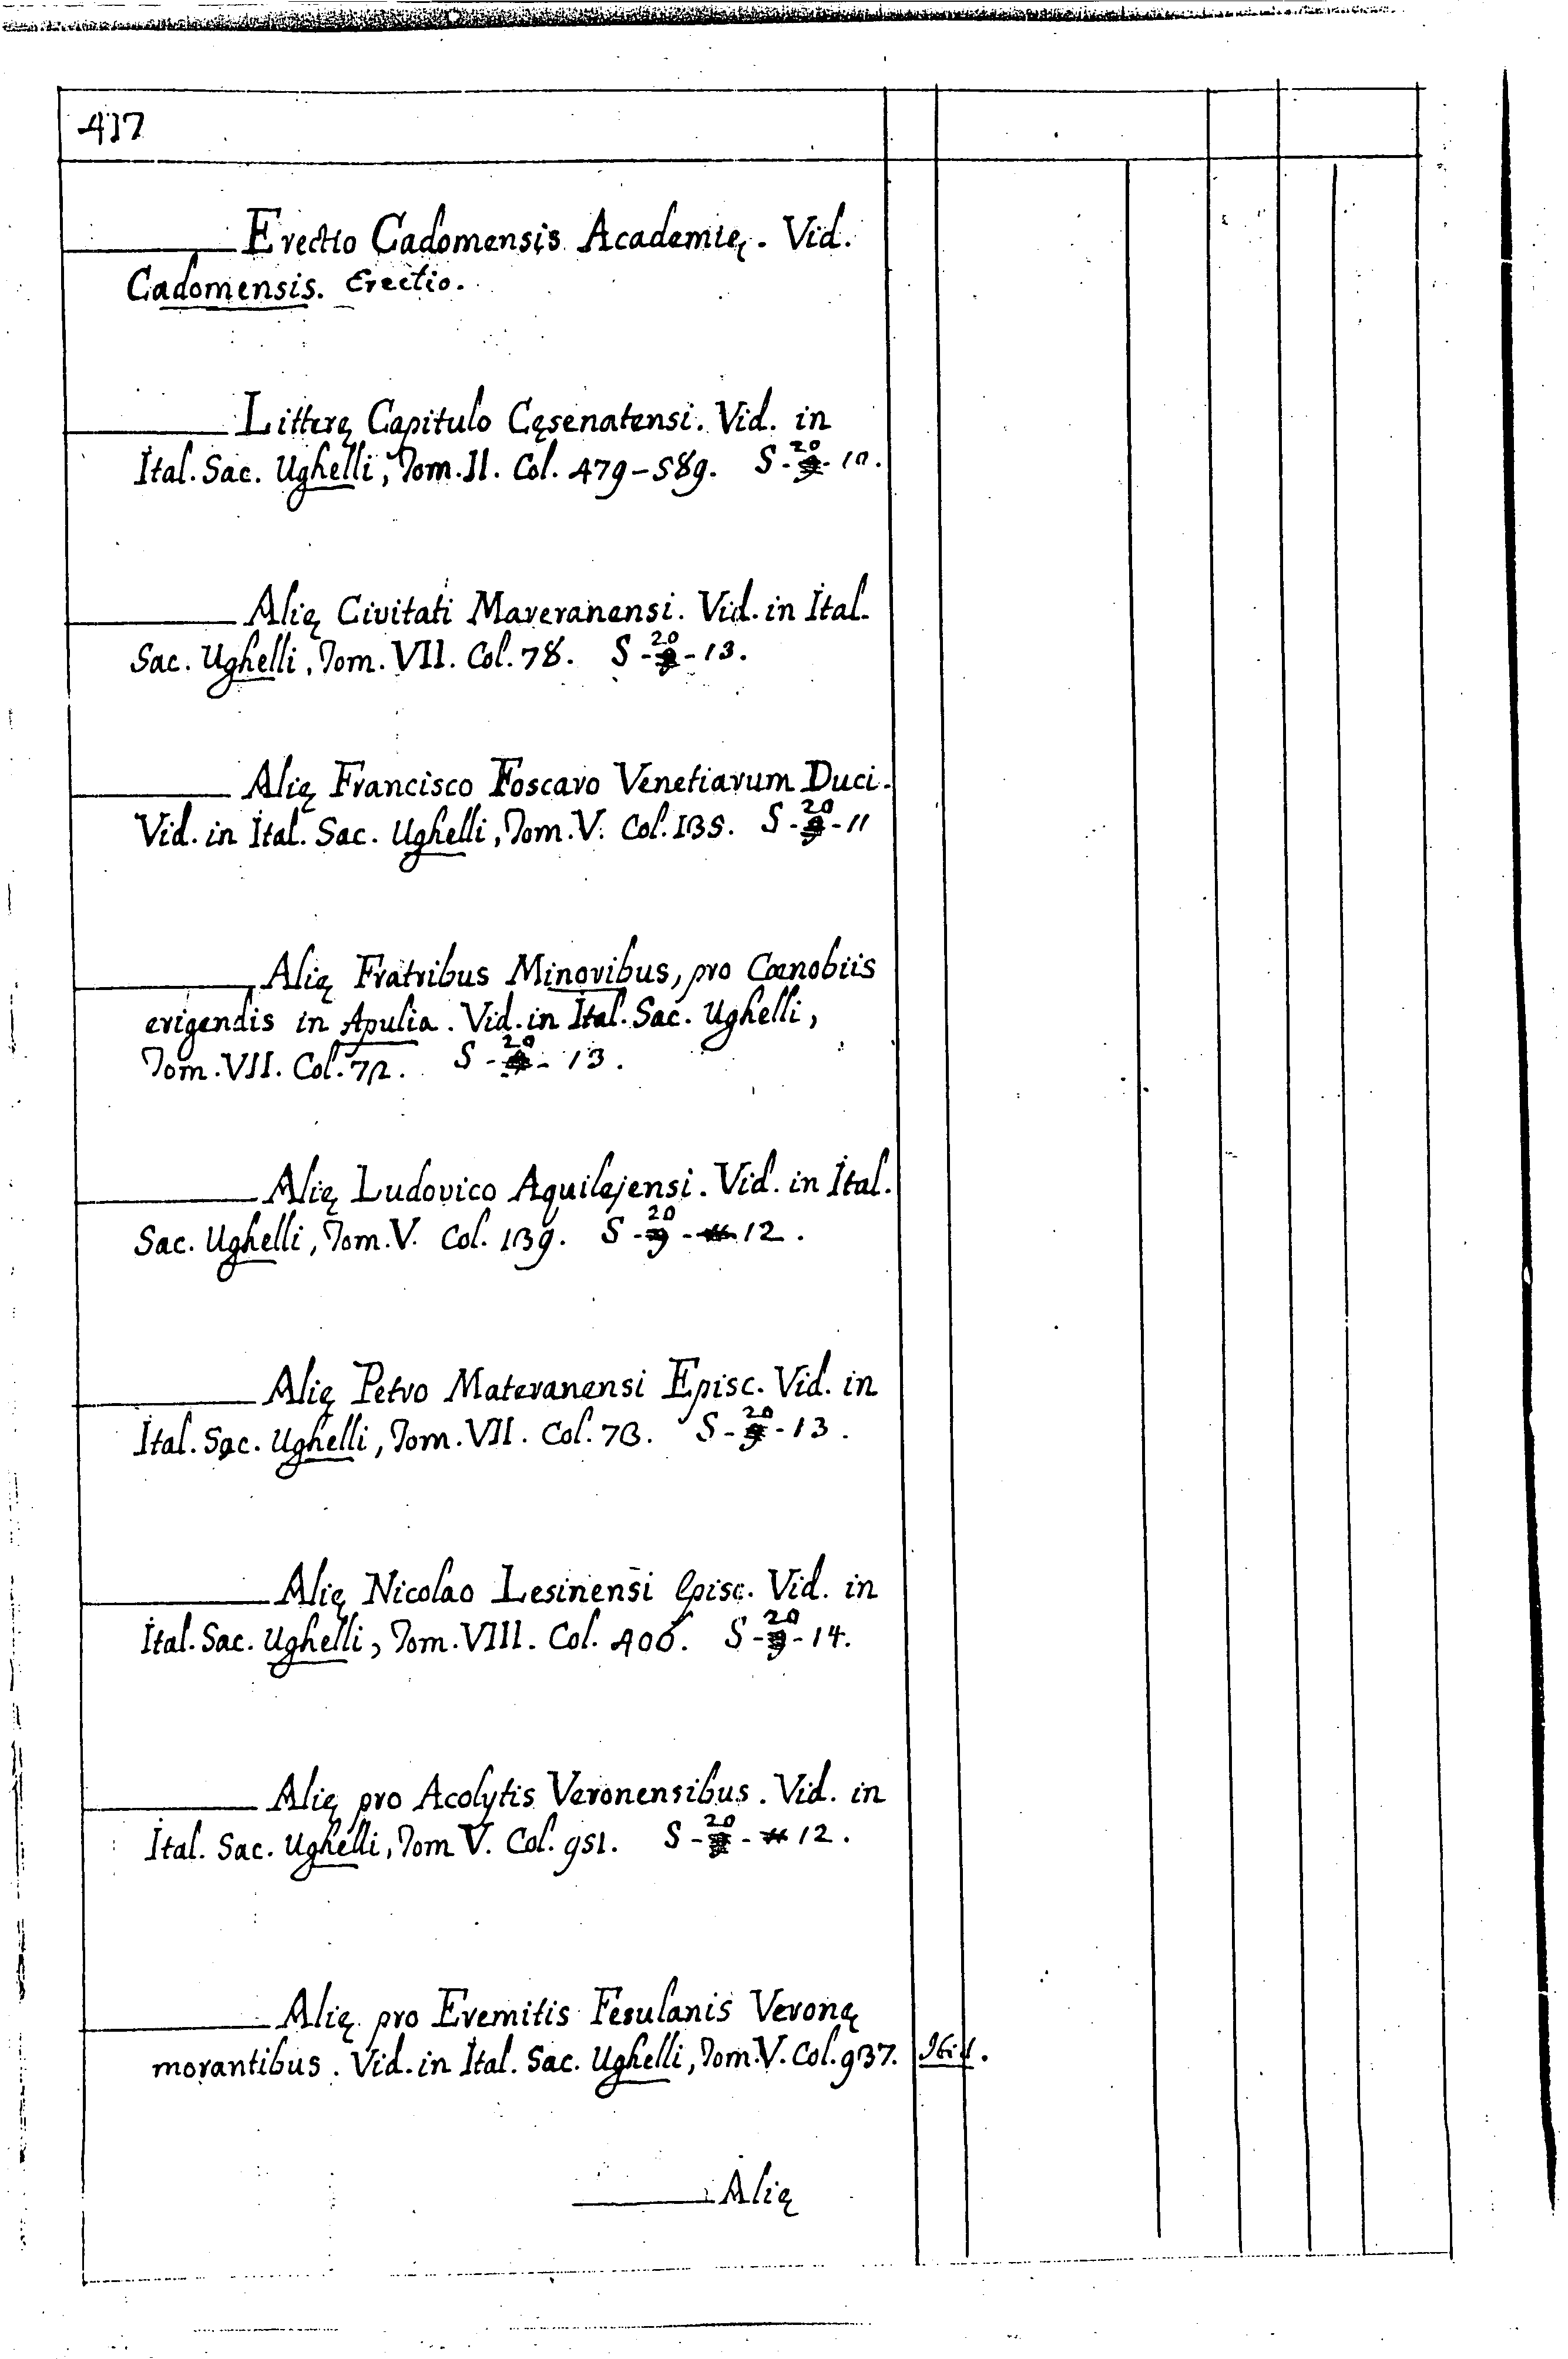 417
Erectio Cadomensis Academię. Vid.
Cadomensis. Erectio.
Litterę Capitulo Cęsenatensi. Vid. in
Ital. Sac. Ughelli, Tom. II. Col. 479-589. S-20-10.
Alię Civitati Maveranensi. Vid. in Ital.
Sac. Ughelli, Tom. VII. Col. 78. S-20-13.
Alię Francisco Foscaro Venetiarum Duci.
Vid. in Ital. Sac. Ughelli, Tom. V. Col. 135. S-20-11
Alię Fratribus Minoribus, pro Cœnobiis
erigendis in Apulia. Vid. in Ital. Sac. Ughelli,
Tom. VII. Col. 72. S-20-13.
Alię Ludovico Aquilejensi. Vid. in Ital.
Sac. Ughelli, Tom. V. Col. 139. S-20-12.
Alię Petro Materanensi Episc. Vid. in
Ital. Sac. Ughelli, Tom. VII. Col. 73. S-20-13.
Alię Nicolao Lesinensi Episc. Vid. in
Ital. Sac. Ughelli, Tom. VIII. Col. 406. S-20-14.
Alię pro Acolytis Veronensibus. Vid. in
Ital. Sac. Ughelli, Tom V. Col. 951. S-20-12.
Alię pro Eremitis Fesulanis Veronę
morantibus. Vid. in Ital. Sac. Ughelli, Tom. V. Col. 937. Ibid.
Alię